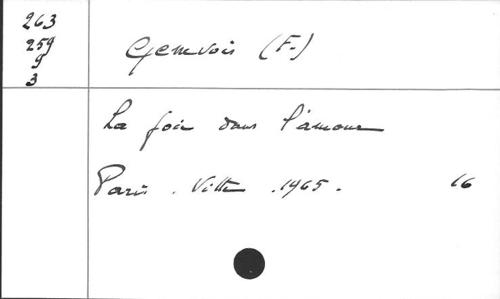 263
259
9
3
Genevois (F.)
La foi dans l'amour
Paris. Vitte. 1965. 16